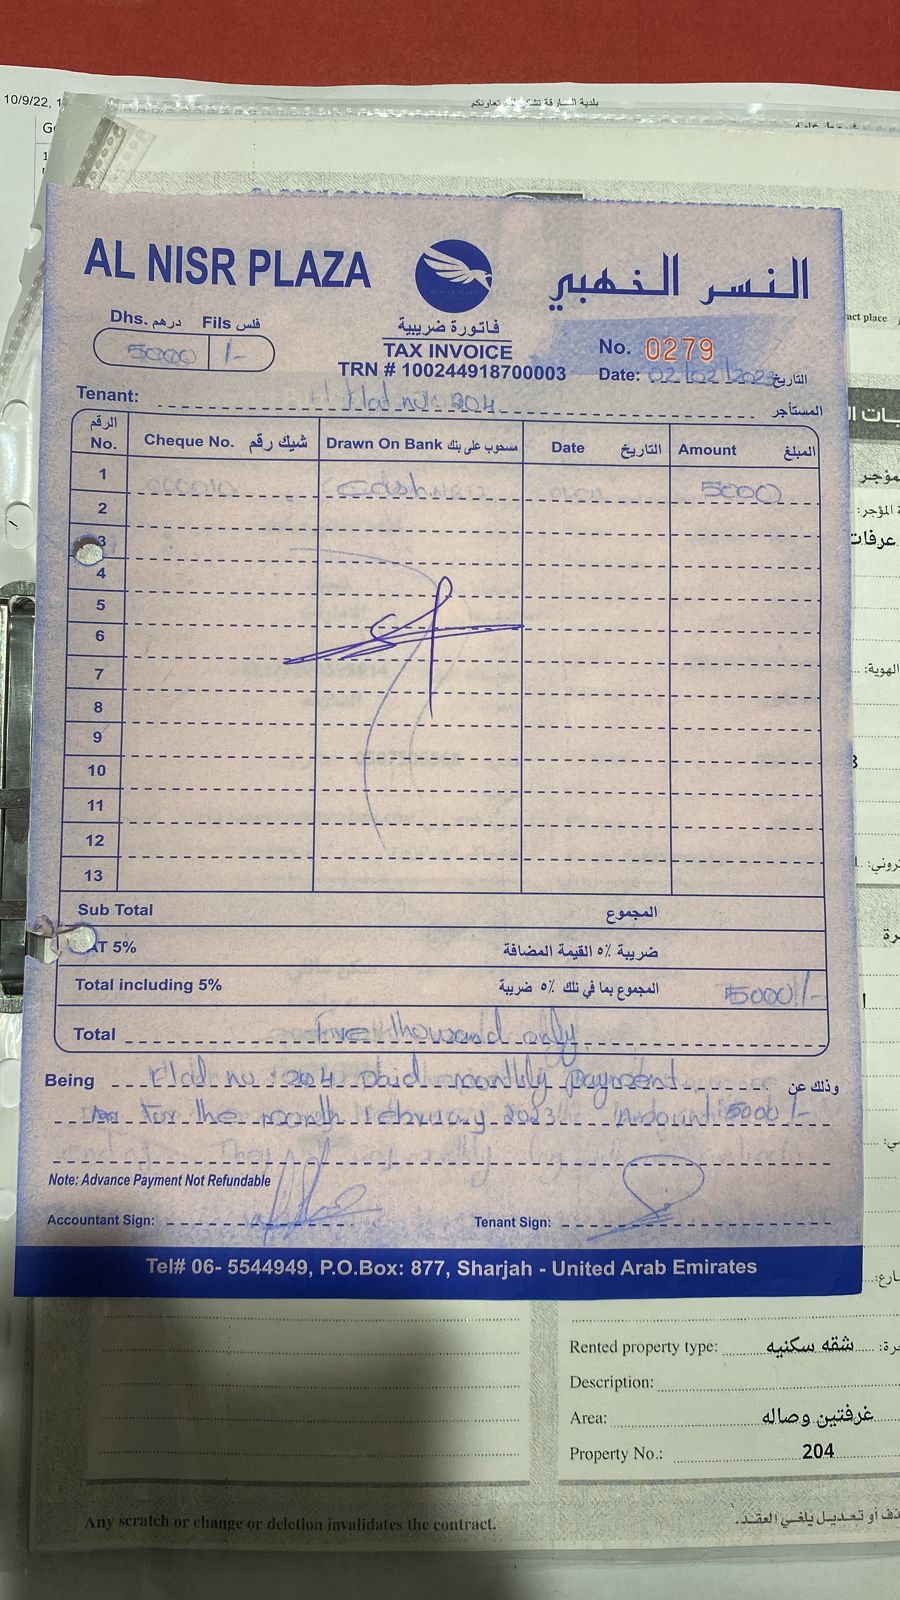 10/9/22, 1
بلدية الشارقة تشكر لكم تعاونكم
AL NISR PLAZA
النسر الذهبي
Dhs. درهم Fils فلس
5000 /-
فاتورة ضريبية
TAX INVOICE
TRN # 100244918700003
No. 0279
Date: 02/02/2023 التاريخ
Tenant: Flat no 204 المستأجر
الرقم No. Cheque No. شيك رقم Drawn On Bank مسحوب على بنك Date التاريخ Amount المبلغ
1 Cash 5000
2
3
4
5
6
7
8
9
10
11
12
13
Sub Total المجموع
AT 5% ضريبة ٥٪ القيمة المضافة
Total including 5% المجموع بما في تلك ٥٪ ضريبة 5000/-
Total Five thousand only
Being Flat no 204 paid monthly payment وذلك عن
For the month February 2023 Amount 5000/-
Note: Advance Payment Not Refundable
Accountant Sign: Tenant Sign:
Tel# 06- 5544949, P.O.Box: 877, Sharjah - United Arab Emirates
act place
عرفات
الهوية:
Rented property type: شقه سكنيه
Description:
Area: غرفتين وصاله
Property No.: 204
Any scratch or change or deletion invalidates the contract.
أو تعديل يلغي العقد.